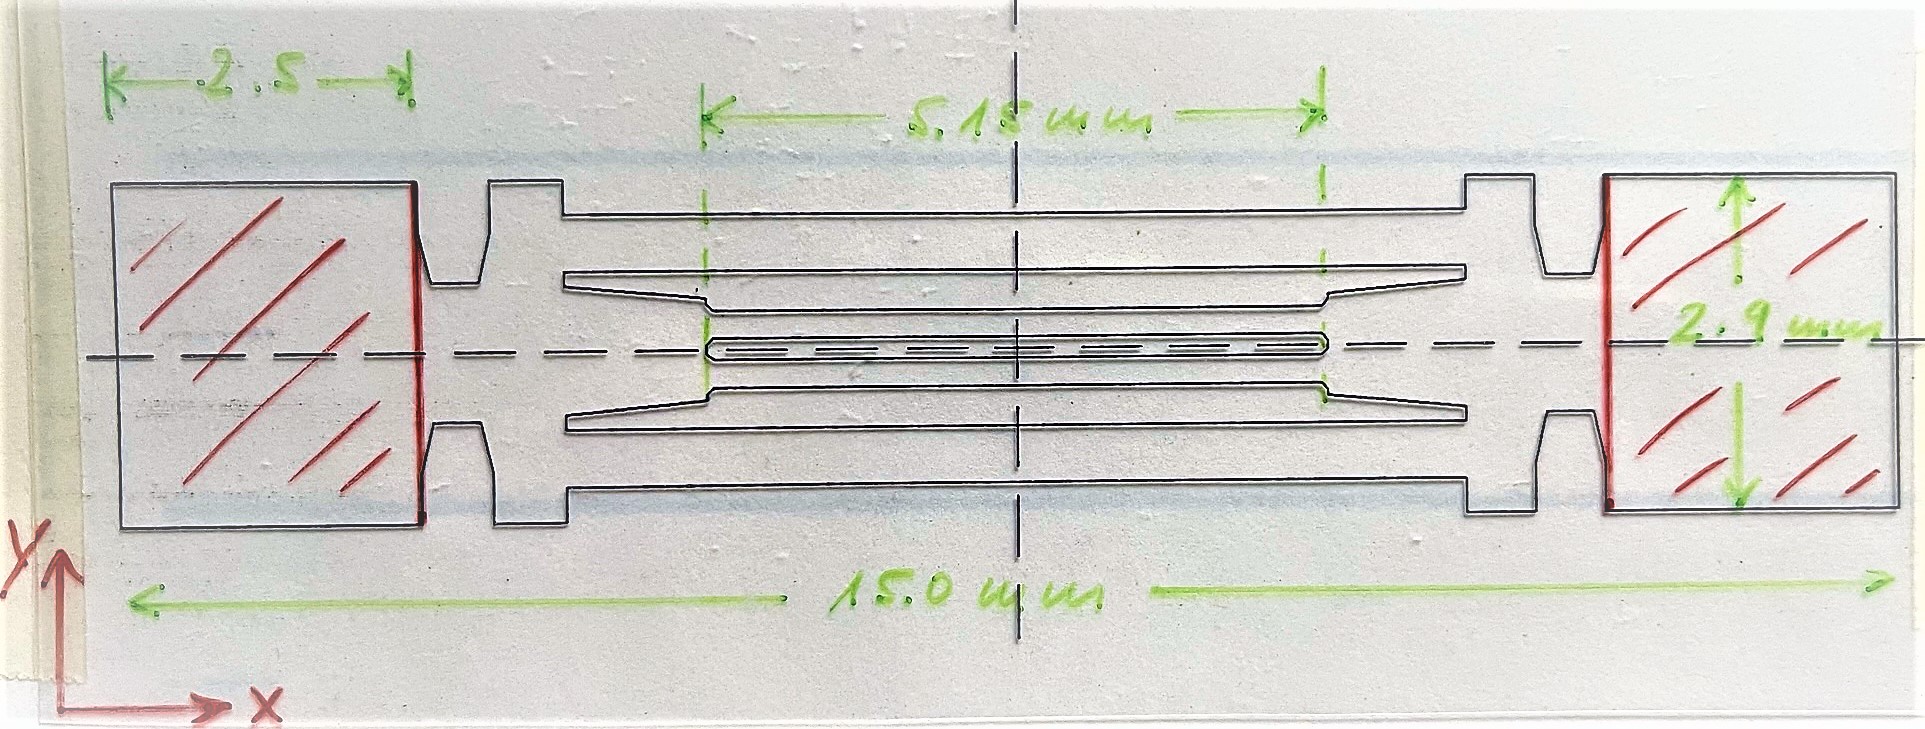 2.5
5.15 mm
2.9 mm
15.0 mm
Y
X